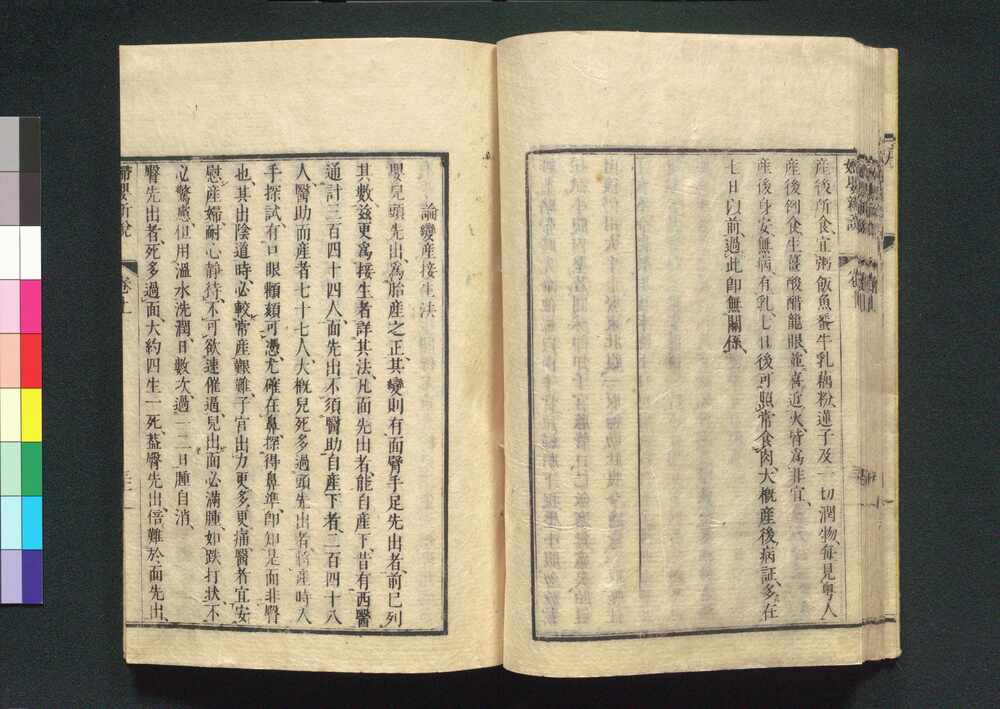 產後所食宜粥飯魚蛋牛乳藕粉蓮子及一切潤物每見粵人
產後例食生薑酸醋龍眼並喜近火皆爲非宜
產後身安無病有乳七日後可照常食肉大概產後病証多在
七日以前過此卽無關係
論變產接生法
嬰兒頭先出爲胎產之正其變則有面臀手足先出者前已列
其數茲更爲接生者詳其法凡面先出者能自產下昔有西醫
通計三百四十四人面先出不須醫助自產下者二百四十八
人醫助而產者七十七人大槪兒死多過頭先出者將產時入
手探試有口眼顴頦可憑尤確在鼻探得鼻準卽知是面非臀
也其出陰道時必較常產艱難子宮出力更多更痛醫者宜安
慰產婦耐心靜待不可欲速催過兒出面必滿腫如跌打狀不
必驚慮但用溫水洗潤日數次過一二日腫自消
臀先出者死多過面大約四生一死葢臀先出倍難於面先出
婦嬰新說